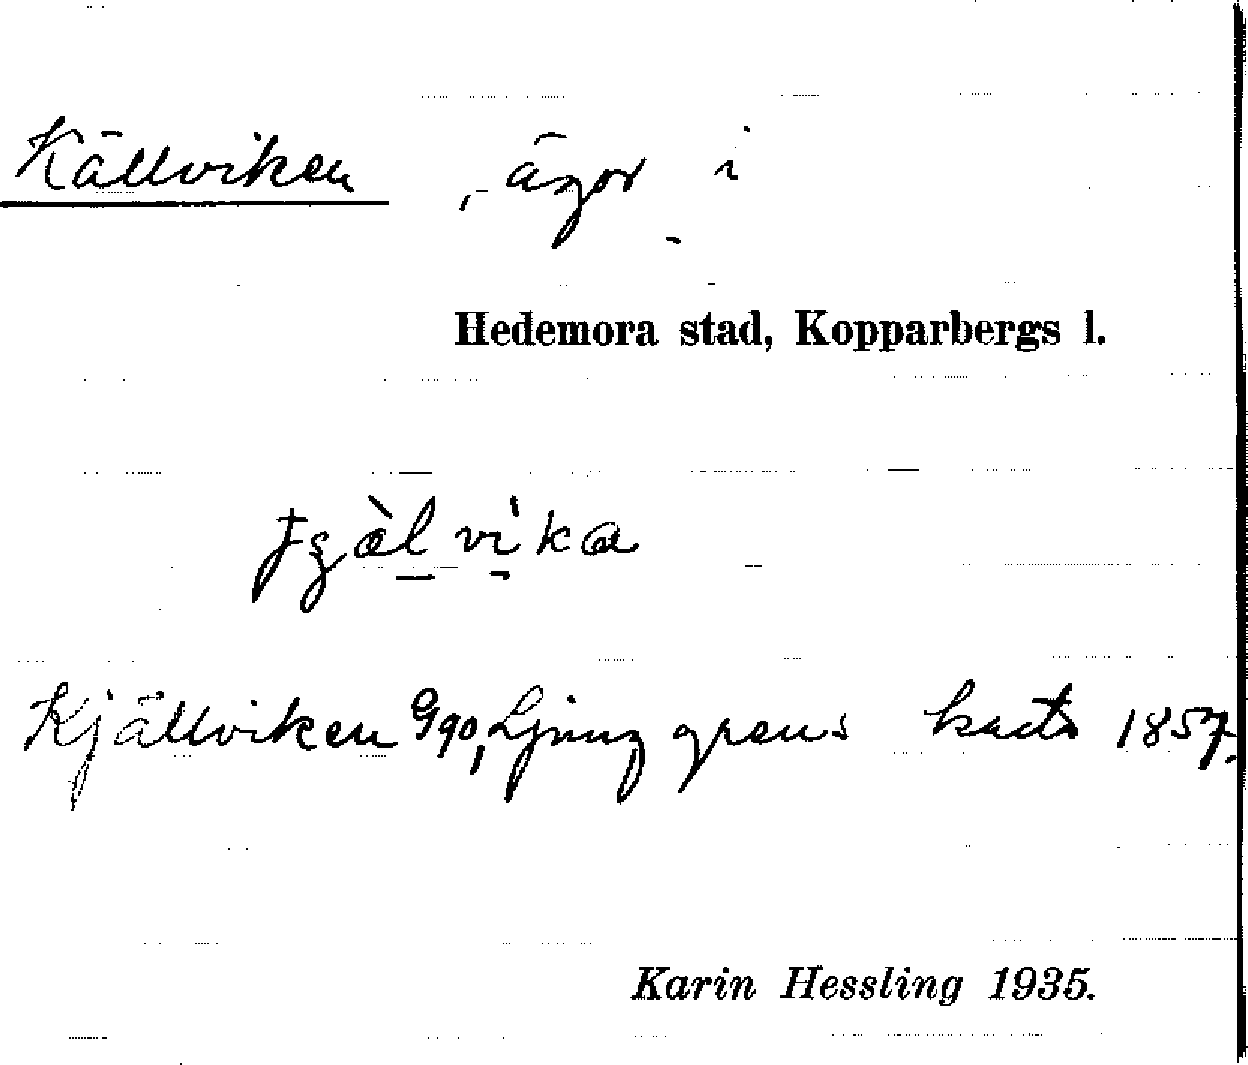 Källviken, ägor i
Hedemora stad, Kopparbergs l.
Kjällviken G90, Ljunggrens karta 1857.
Karin Hessling 1935.